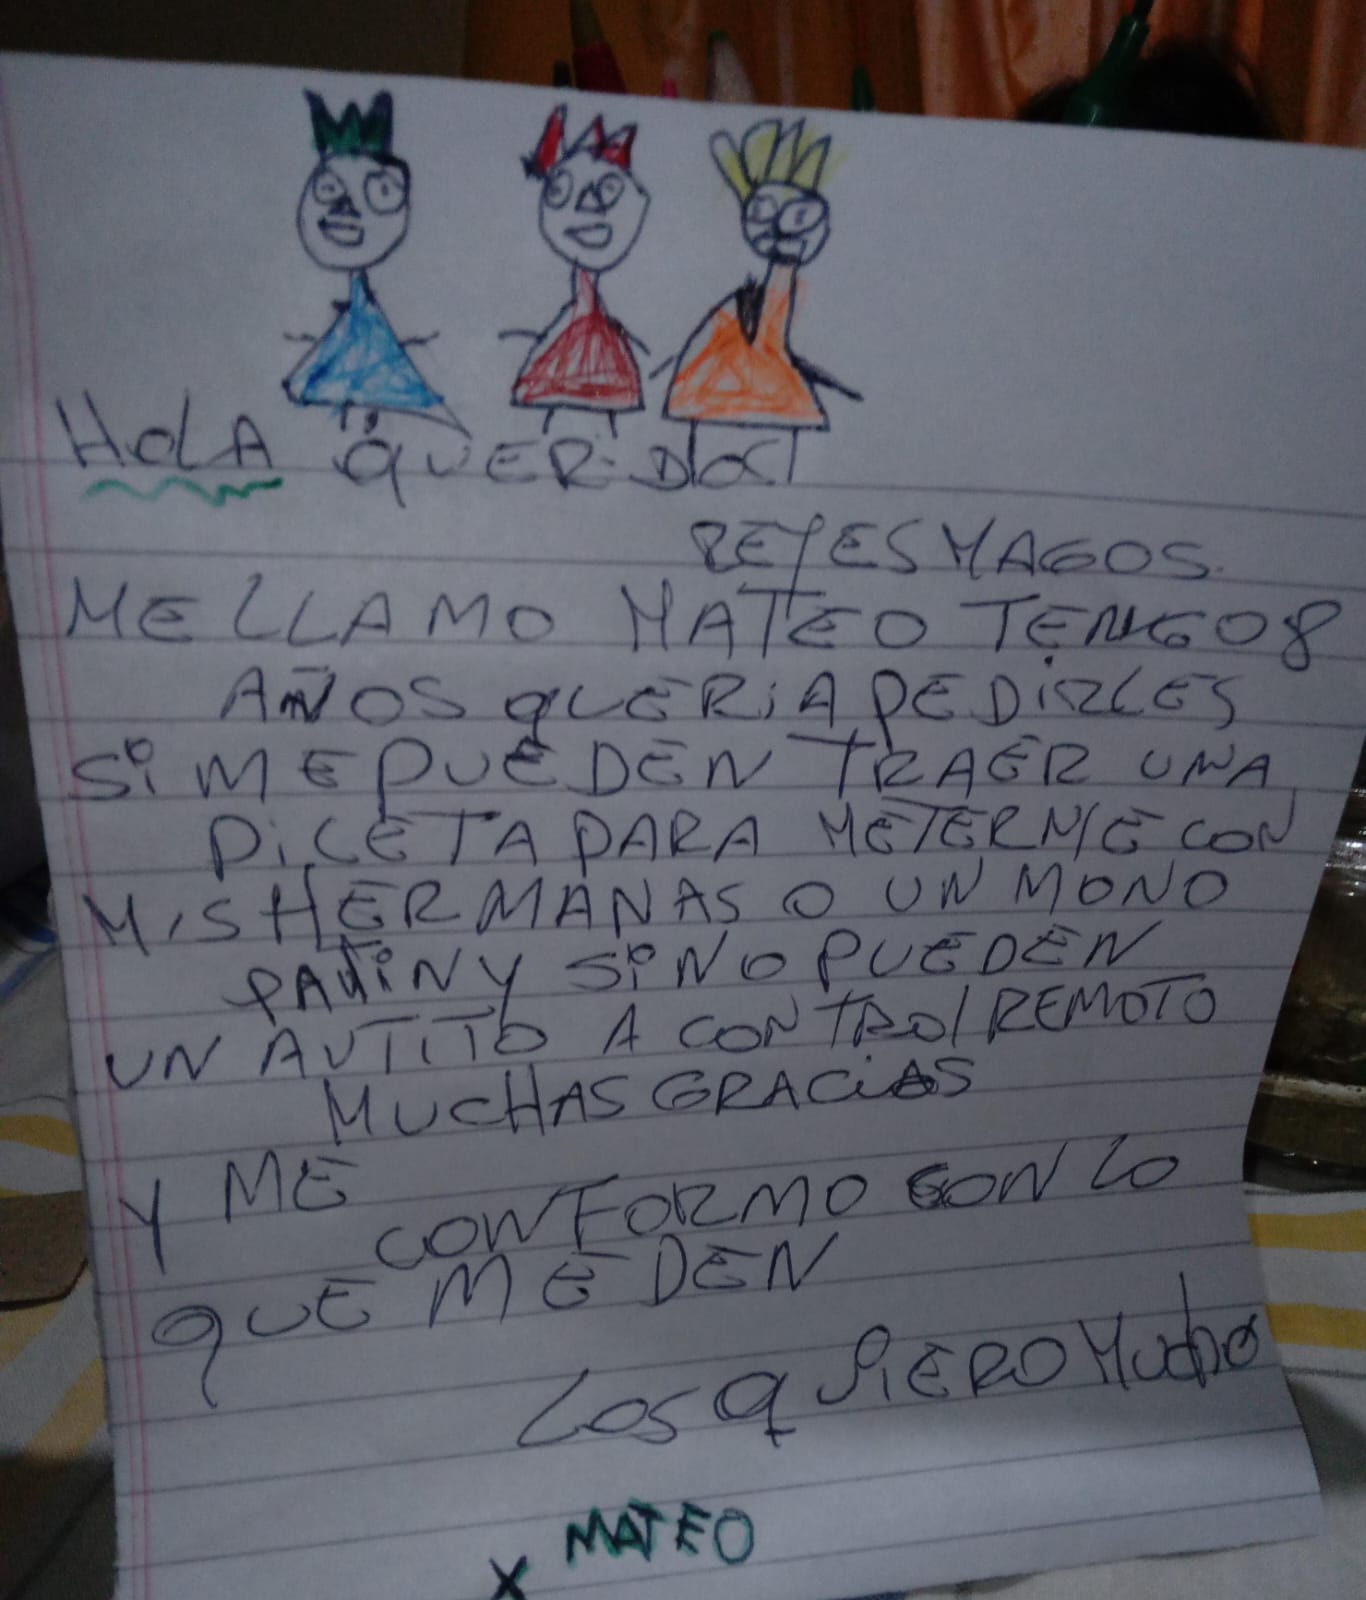 HOLA QUERIDOS
REYES MAGOS.
ME LLAMO MATEO TENGO 8
AÑOS QUERIA PEDIRLES
Si ME PUEDEN TRAER UNA
PiLETA PARA METERME CON
MIS HERMANAS O UN MONO
PATiN Y Si NO PUEDEN
UN AUTITO A CONTROl REMOTO
MUCHAS GRACiAS
Y ME
CONFORMO CON LO
QUE ME DEN
LOS QUiERO MUchO
X MATEO